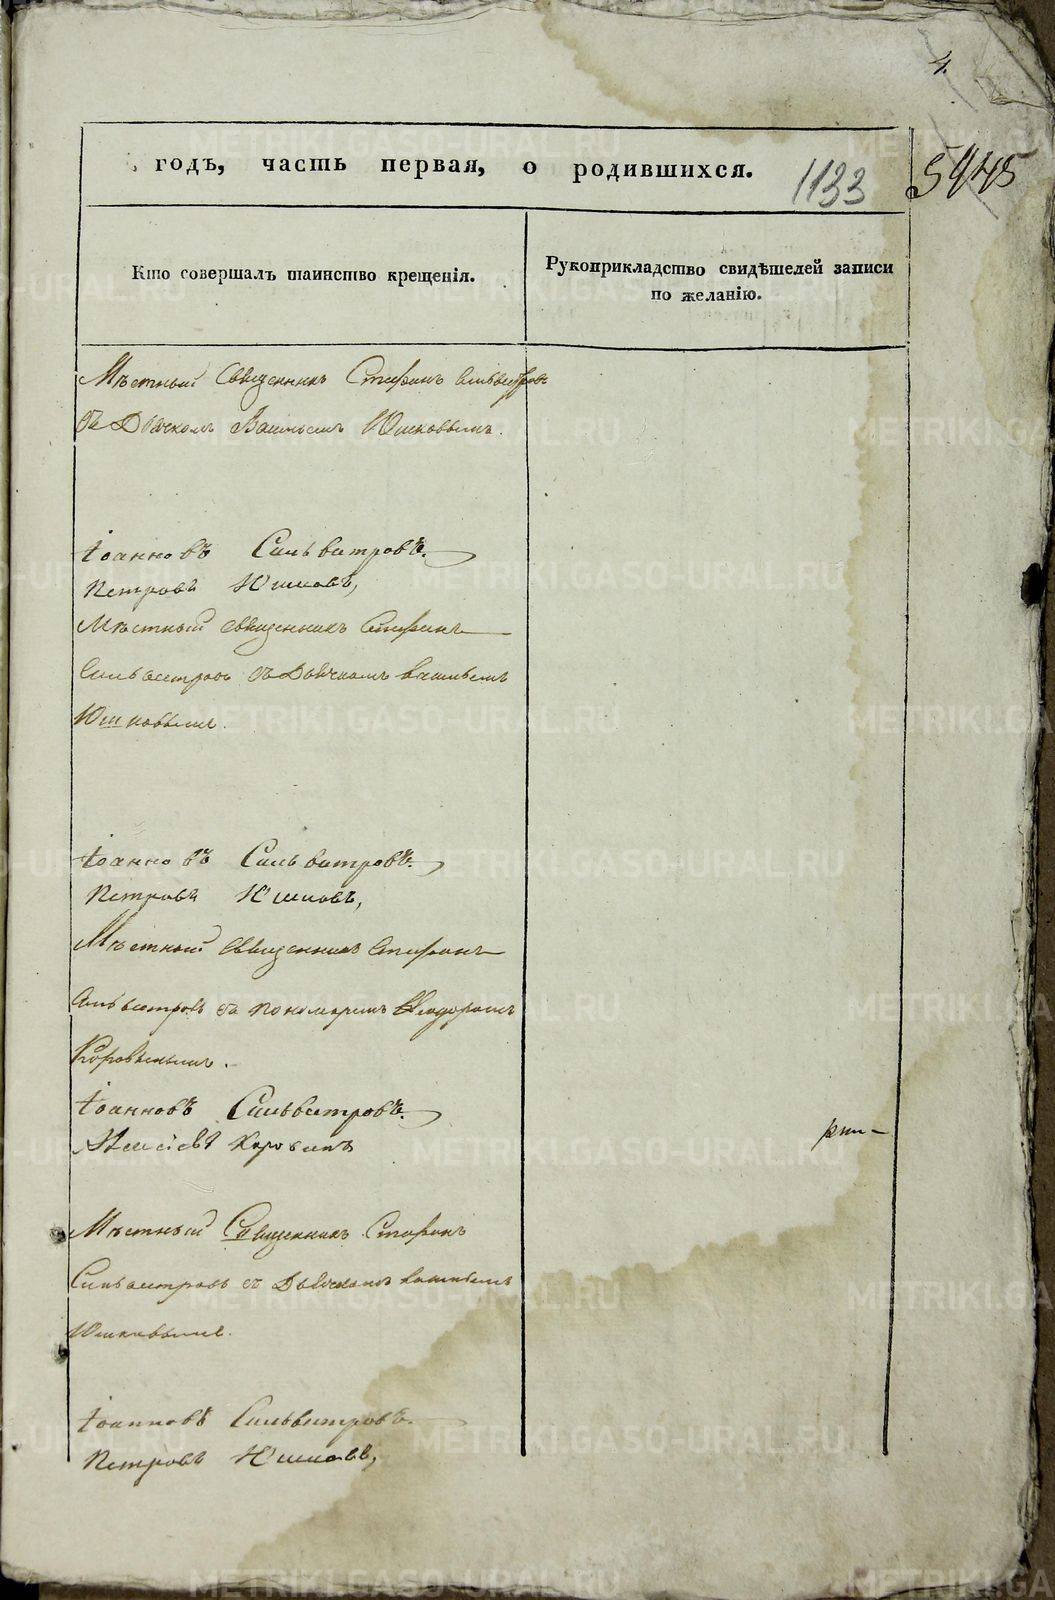 4.
годъ, часть первая, о родившихся.
1133
5945
Кто совершалъ таинство крещенія.
Рукоприкладство свидѣтелей записи
по желанію.
Мѣстный Священникъ Стефанъ Сильвестровъ
съ Дьячкомъ Васильемъ Юшковымъ.
Іоанновъ Сильвестровъ.
Петровъ Юшковъ,
Мѣстный священникъ Стефанъ
Сильвестровъ съ Дьячкомъ Васильемъ
Юшковымъ.
Іоанновъ Сильвестровъ.
Петровъ Юшковъ,
Мѣстный Священникъ Стефанъ
Сильвестровъ съ пономаремъ Ѳеодоромъ
Коровинымъ.
Іоанновъ Сильвестровъ.
Алексіевъ Коровинъ
Мѣстный Священникъ Стефанъ
Сильвестровъ съ Дьячкомъ Васильемъ
Юшковымъ.
Іоанновъ Сильвестровъ.
Петровъ Юшковъ,
METRIKI.GASO-URAL.RU